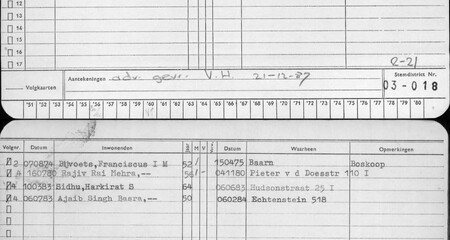 12
13
14
15
16
17
2-21
Volgkaarten
Aantekeningen adv. gevr. V.H. 21-12-87
Stemdistrict Nr.
03-018
'51 '52 '53 '54 '55 '56 '57 '58 '59 '60 '61 '62 '63 '64 '65 '66 '67 '68 '69 '70 '71 '72 '73 '74 '75 '76 '77 '78 '79 '80
Volgnr. Datum Inwonenden Jaar M V Datum Waarheen Opmerkingen
2 070824 Bijvoets, Franciscus I M 52 / 150475 Baarn Boskoop
4 160780 Rajiv Rai Mehra,-- 56 /- 041180 Pieter v d Doesstr 110 I
4 100383 Sidhu, Harkirat S 64 060683 Hudsonstraat 25 I
4 060783 Ajaib Singh Basra,-- 50 060284 Echtenstein 518